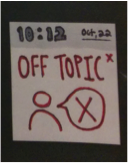 10:12 oct,22
OFF TOPIC*
X